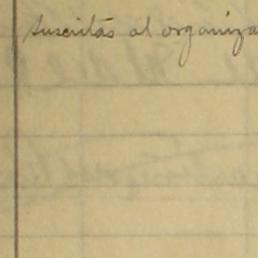 suscritas al organiza